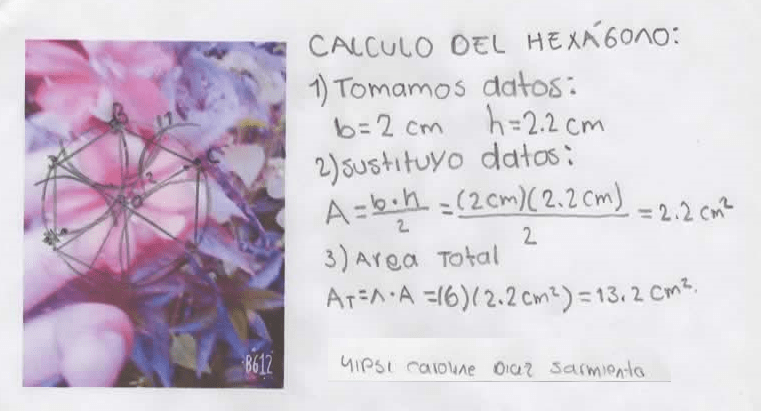 CALCULO DEL HEXÁGONO:
1) Tomamos datos:
b=2 cm h=2.2 cm
2) sustituyo datos:
A = b·h/2 = (2cm)(2.2cm)/2 = 2.2 cm²
3) Area Total
A_T = n·A = (6)(2.2cm²) = 13.2 cm².
B
C
B612
Yipsi caroline Diaz Sarmiento